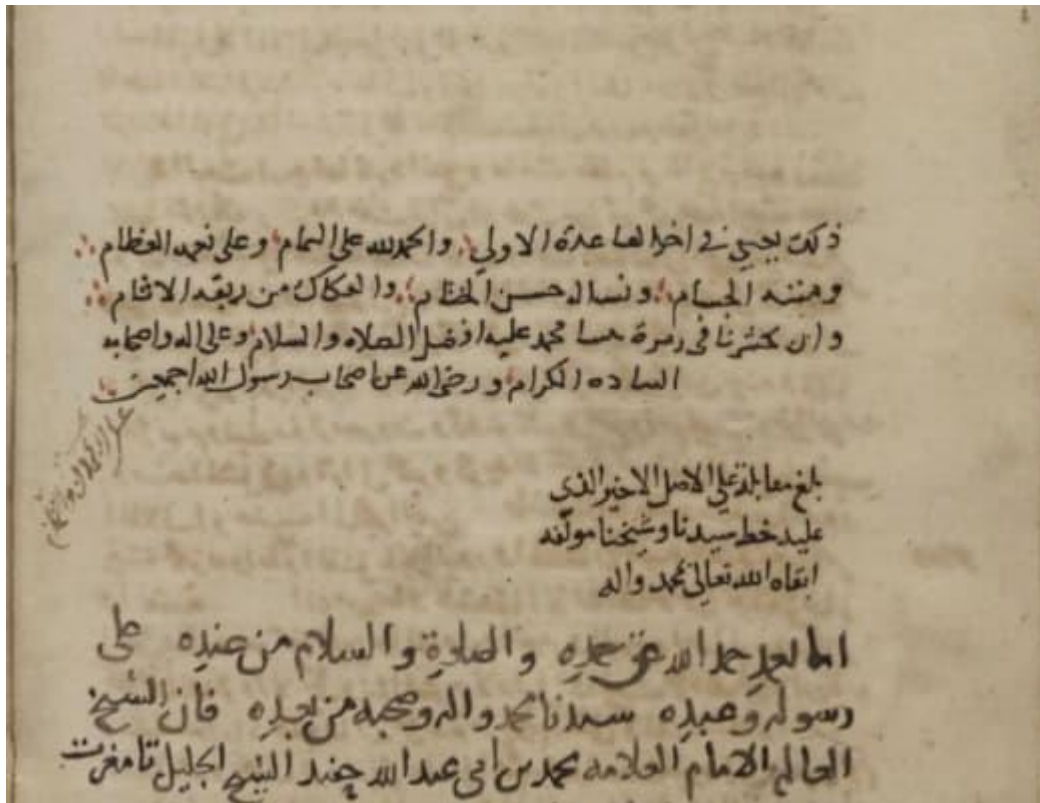 ذكره يحيى في اخر القاعدة الاولى والحمد لله على التمام وعلى نعمه العظام
ومننه الجسام ونساله حسن الختام والفكاك من ربقه الاثام
وان يحشرنا في زمرة محمد عليه افضل الصلاه والسلام وعلى اله واصحابه
الساده الكرام ورضى الله عن اصحاب رسول الله اجمعين
بلغ مقابلة على الاصل الاخير الذي
عليه خط سيدنا وشيخنا مولفه
ابقاه الله تعالى بمحمد واله
اما بعد حمد الله حق حمده والصلوة والسلام من عنده على
رسوله وعبده سيدنا محمد واله وصحبه من بعده فان الشيخ
العالم الامام العلامه محمد بن ابي عبد الله الشيخ الجليل